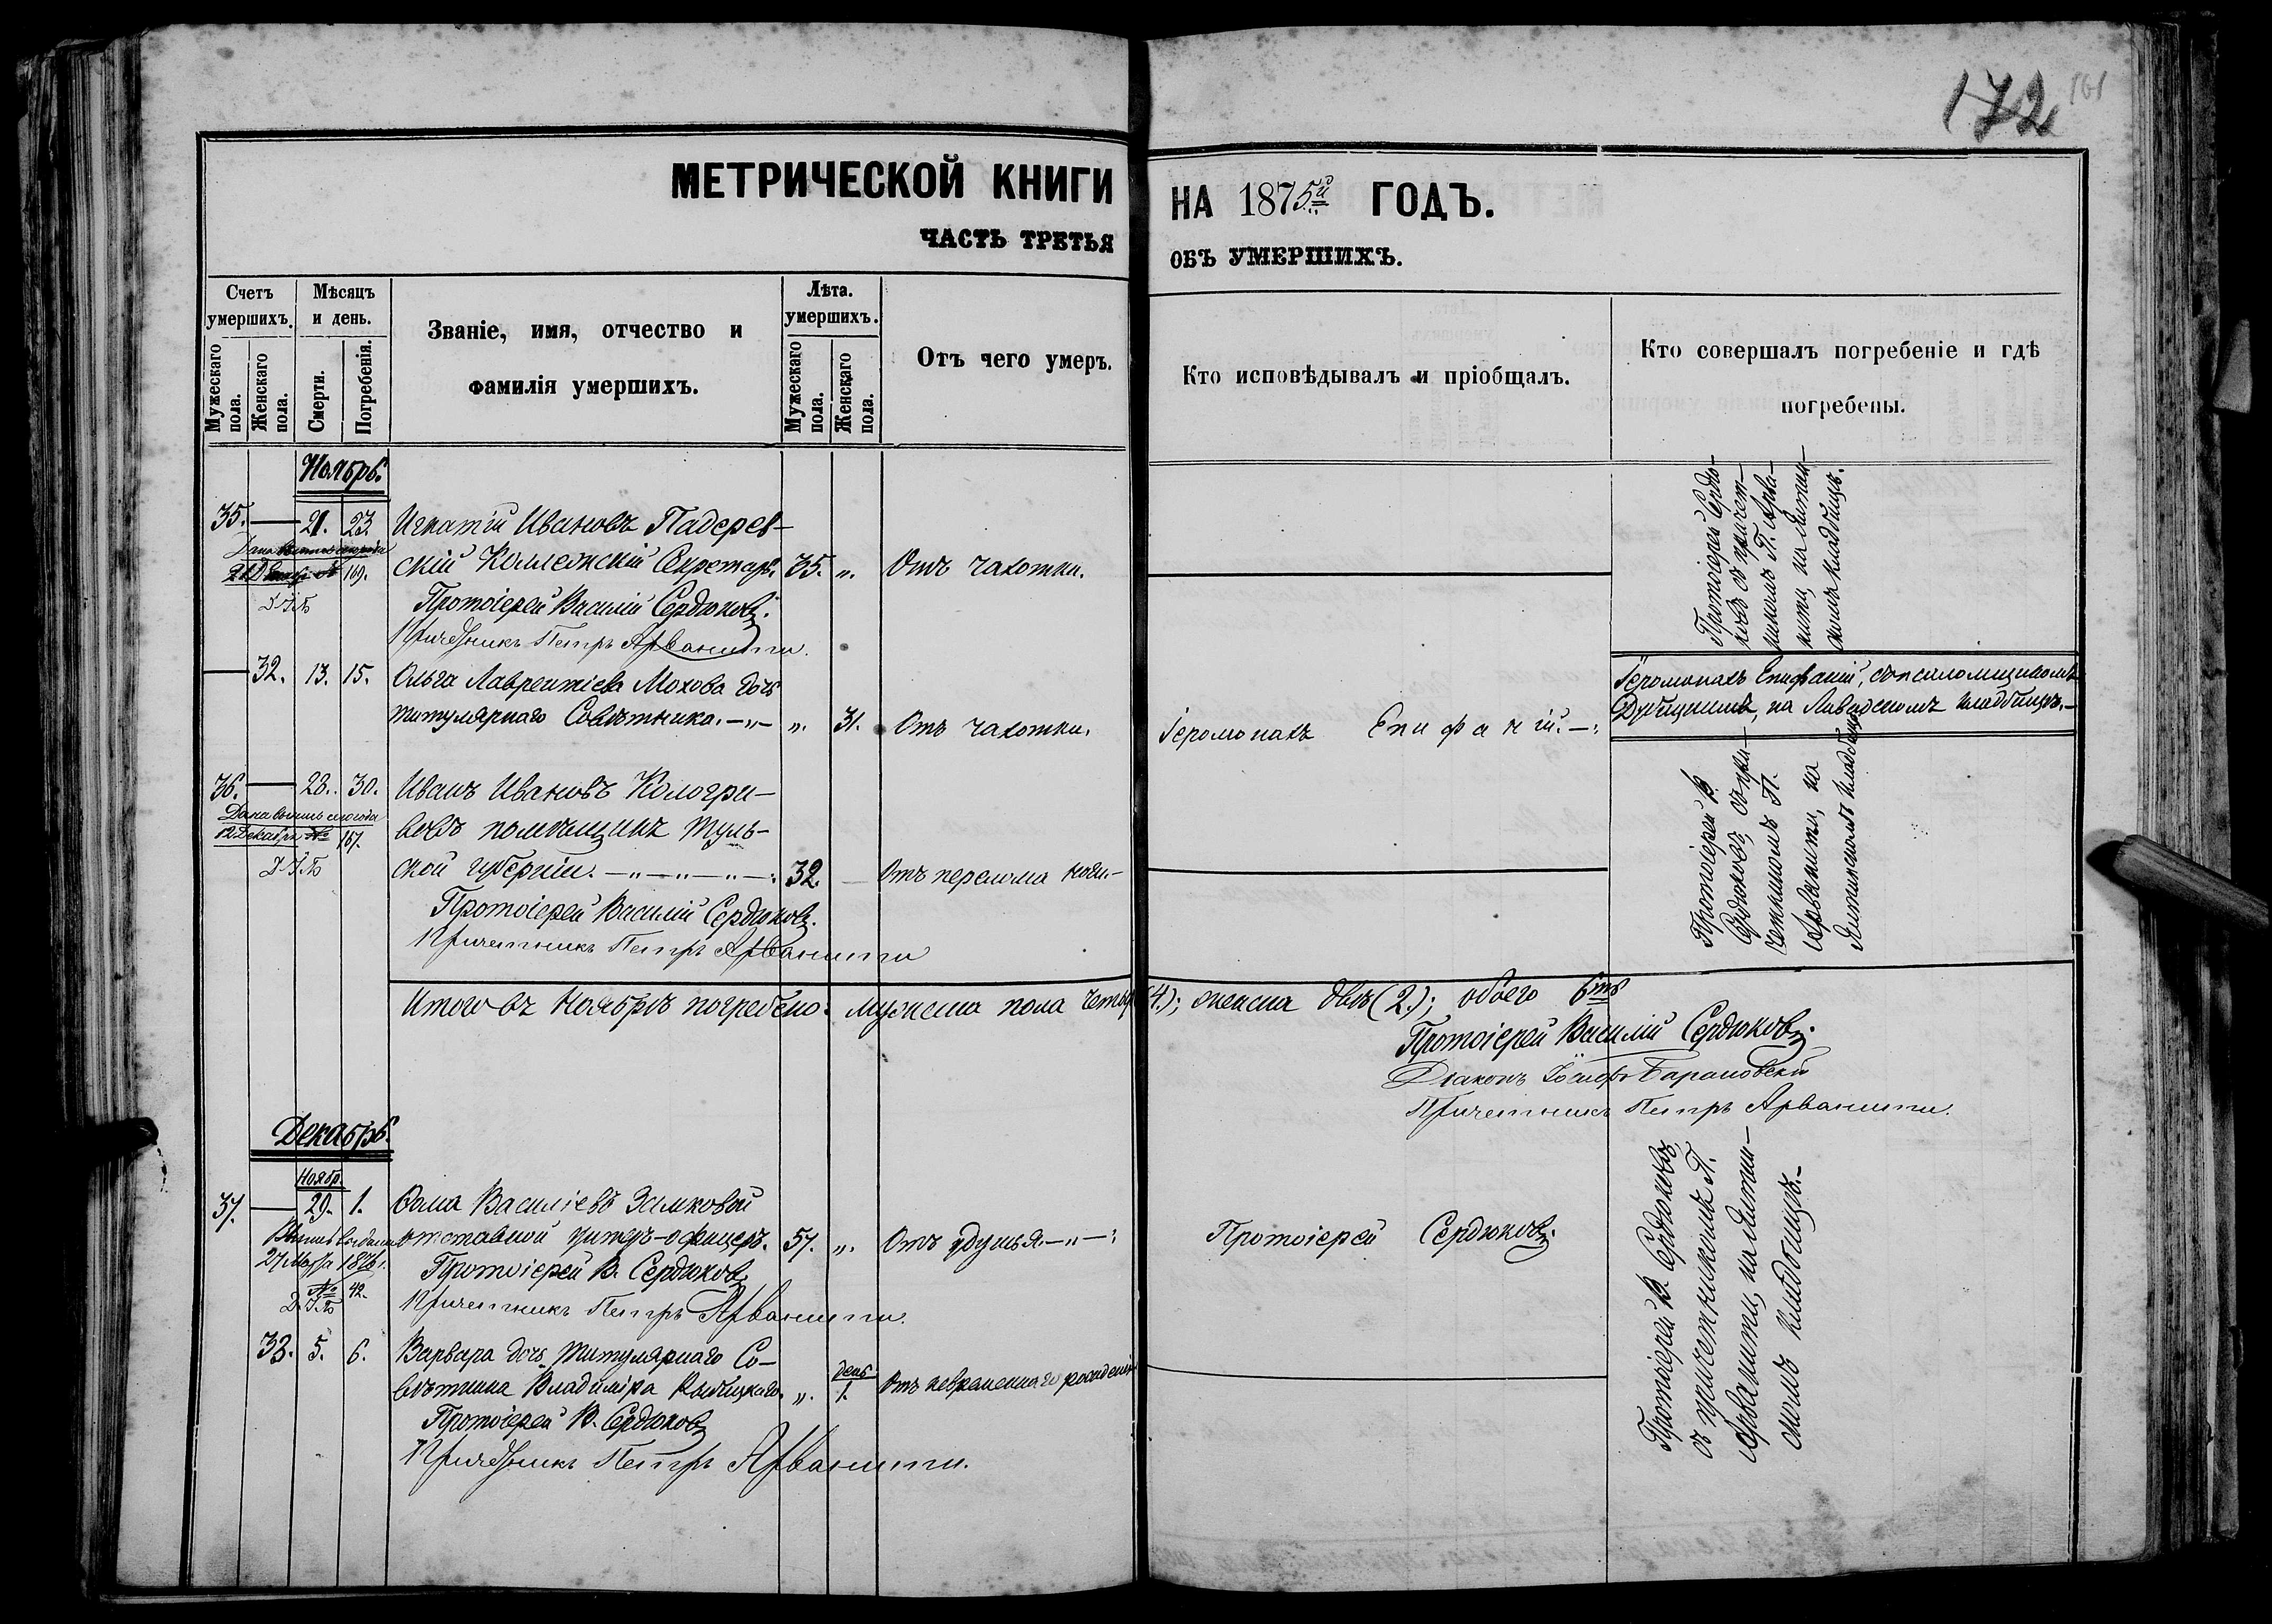 172 161
МЕТРИЧЕСКОЙ КНИГИ НА 1875й ГОДЪ.
ЧАСТЬ ТРЕТЬЯ ОБЪ УМЕРШИХЪ.
Счетъ умершихъ.
Мужескаго пола.
Женскаго пола.
Мѣсяцъ и день.
Смерти.
Погребенія.
Званіе, имя, отчество и
фамилія умершихъ.
Лѣта умершихъ.
Мужескаго пола.
Женскаго пола.
Отъ чего умеръ.
Кто исповѣдывалъ и пріобщалъ.
Кто совершалъ погребеніе и гдѣ
погребены.
Ноябрь.
35. — 21. 23 Игнатій Ивановъ Падерев-
скій Коллежскій Секретарь. 35. „. Отъ чахотки.
169.
Протоіерей Василій Сердюковъ.
Причетникъ Петръ Арванити.
Протоіерей Сердю-
ковъ съ причет-
никомъ П. Арва-
нити, на Ялтин-
скомъ кладбищѣ.
— 32. 13. 15. Ольга Лаврентіева Мохова дочь
титулярнаго Совѣтника. —„— „. 31. Отъ чахотки.
Іеромонахъ Епифаній. —:
Іеромонахъ Епифаній, съ псаломщикомъ
на Ливадскомъ кладбищѣ. —
36. — 28. 30. Иванъ Ивановъ Кологри-
Дана выпись сего года
12 Декабря № 167.
вовъ помѣщикъ Туль-
ской губерніи. —„—„—„—. 32. — Отъ перелома ноги —
Протоіерей Василій Сердюковъ.
Причетникъ Петръ Арванити
Протоіерей В.
Сердюковъ, съ при-
четникомъ П.
Арванити, на
Ялтинскомъ кладбищѣ
Итого въ Ноябрѣ погребено: мужеска пола четыр (4.); женска двѣ (2.); обоего 6ть
Протоіерей Василій Сердюковъ.
Діаконъ Іосифъ Барановскій
Причетникъ Петръ Арванити.
Декабрь.
Ноябр.
37. — 29. 1. Ѳома Василіевъ Замковой
отставной унтеръ-офицеръ. 57. „. Отъ удушья. —„—:
27 Марта 1876 г.
№ 42.
Протоіерей В. Сердюковъ
Причетникъ Петръ Арванити.
Протоіерей Сердюковъ.
Протоіерей В. Сердюковъ
съ причетникомъ П.
Арванити, на Ялтин-
скомъ кладбищѣ. —
33. 5. 6. Варвара дочь Титулярнаго Со-
вѣтника Владиміра „. день 1. Отъ рожденія
Протоіерей В. Сердюковъ
Причетникъ Петръ Арванити.